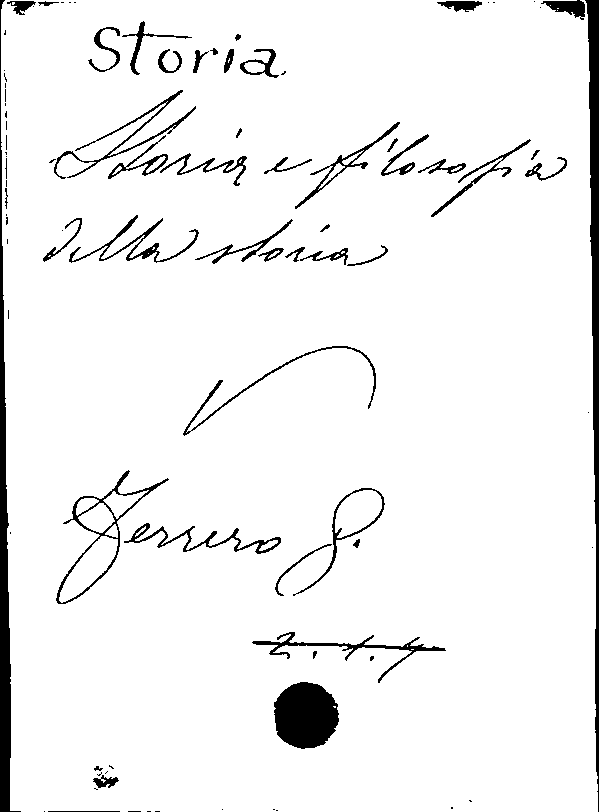 Storia
Storia e filosofia
della storia
V
Ferrero G.
2.1.4